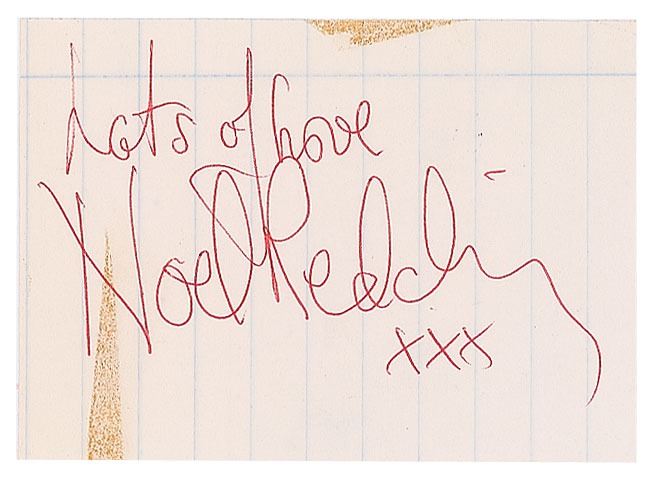 Lots of love
Noel Redding
xxx